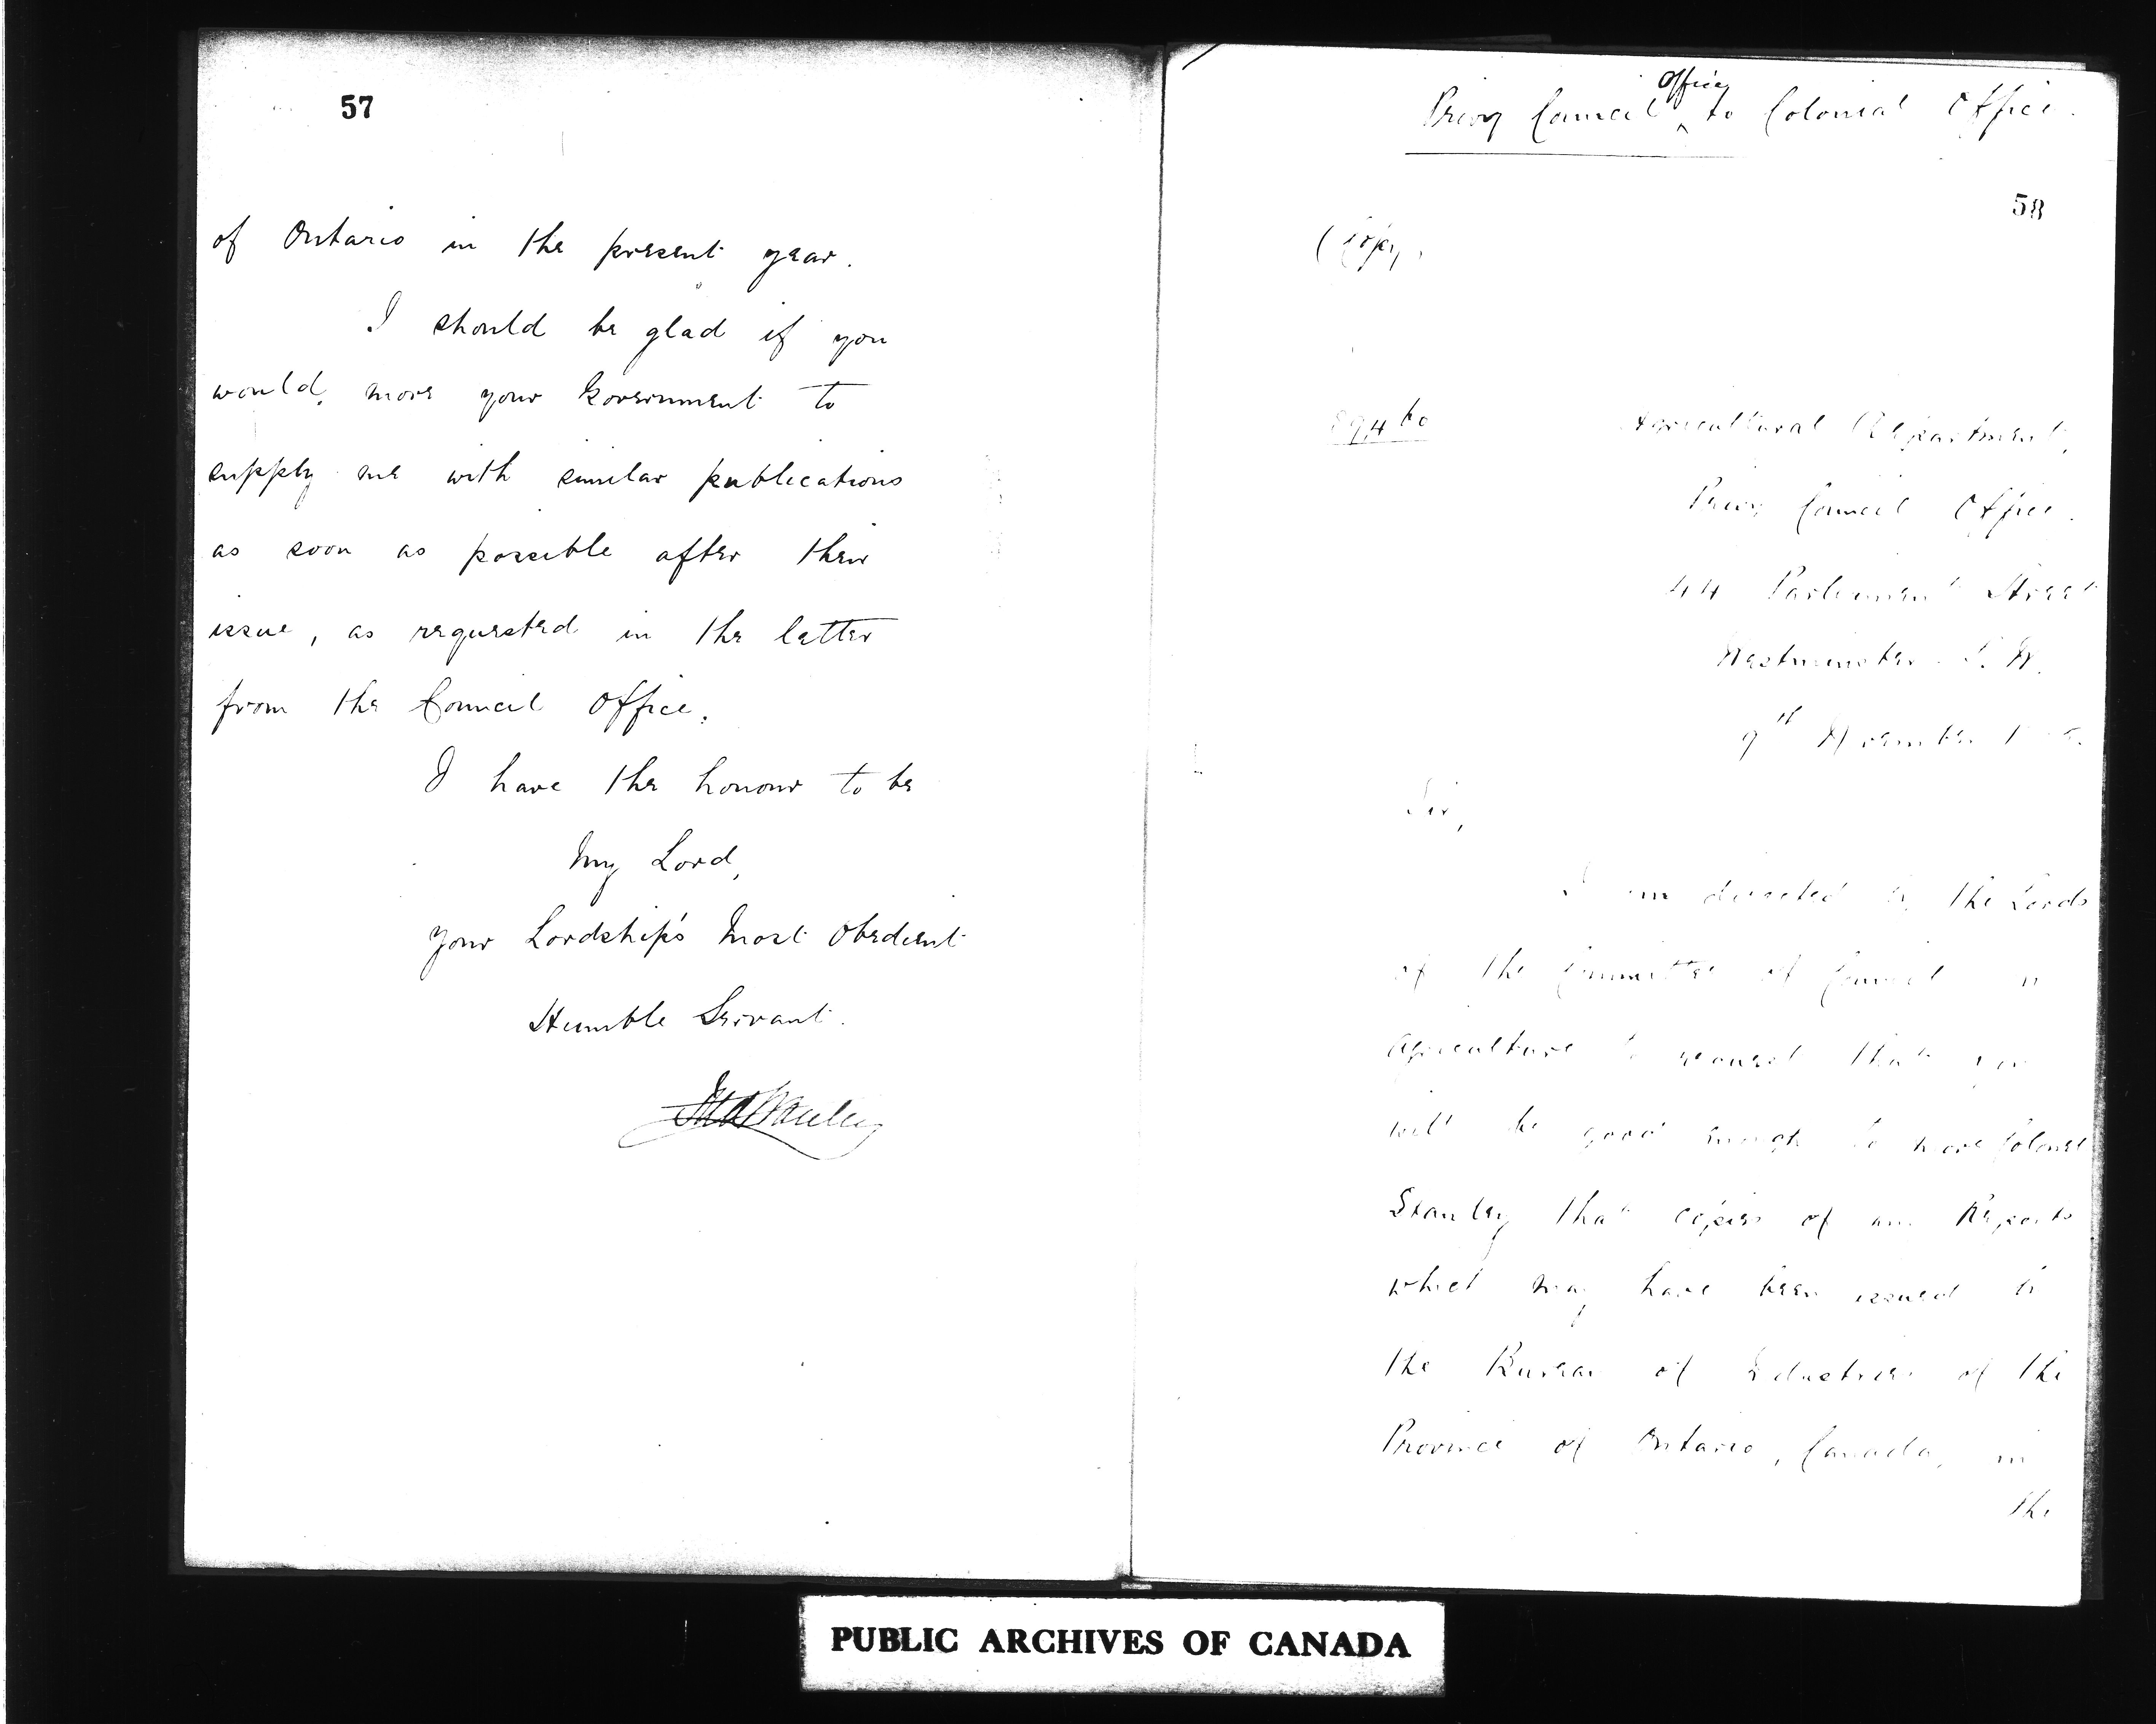 57
of Ontario in the present year.
I should be glad if you
would move your Government to
supply me with similar publications
as soon as possible after their
issue, as requested in the letter
from the Council Office.
I have the honour to be
My Lord,
your Lordship's Most Obedient
Humble Servant.
Privy Council Office to Colonial Office.
58
(Copy,
Agricultural Department,
Privy Council Office.
44 Parliament Street
Westminster S.W.
9th November
Sir,
I am directed by the Lords
of the Committee of Council
Agriculture to request that you
will be good enough to move Colonel
Stanley that copies of any Reports
which may have been issued by
the Bureau of Industries of the
Province of Ontario, Canada, in
the
PUBLIC ARCHIVES OF CANADA